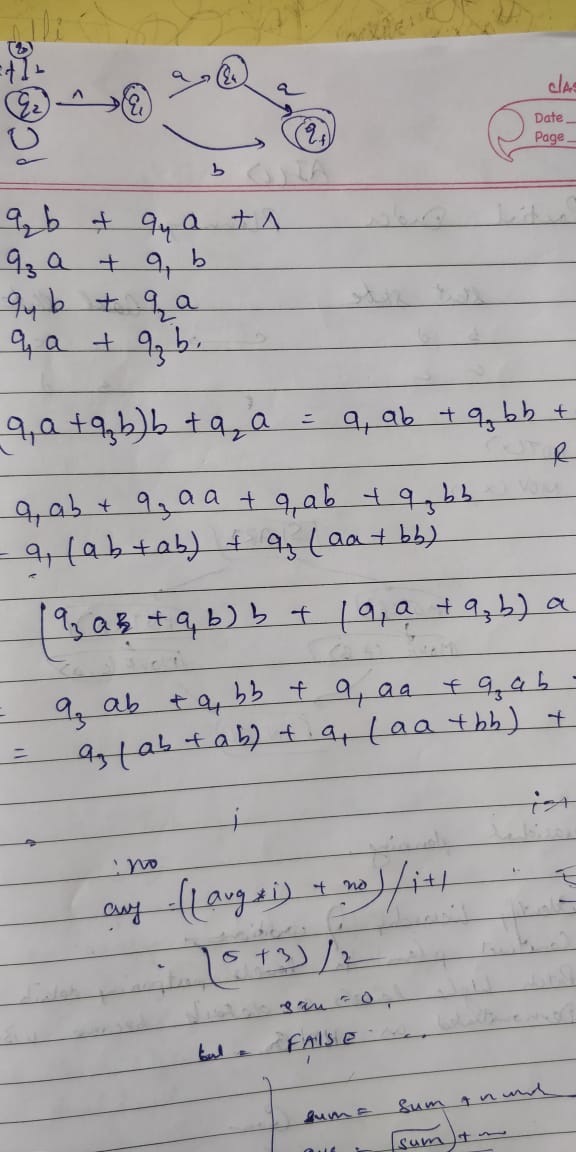 q2 ^ q1 a q4 a qf
a b
CLAS
Date
Page
q2b + q4a + ^
q3a + q1b
q4b + q2a
q1a + q3b.
(q1a + q3b)b + q2a = q1ab + q3bb +
R
q1ab + q3aa + q1ab + q3bb
- q1(ab + ab) + q3(aa + bb)
(q3a + q1b)b + (q1a + q3b)a
= q3ab + q1bb + q1aa + q3ab
= q3(ab + ab) + q1(aa + bb) +
i
: no
avg = ((avg*i) + no)/i+1
(5 + 3)/2
= 0,
= FALSE
sum = sum + n
sum +